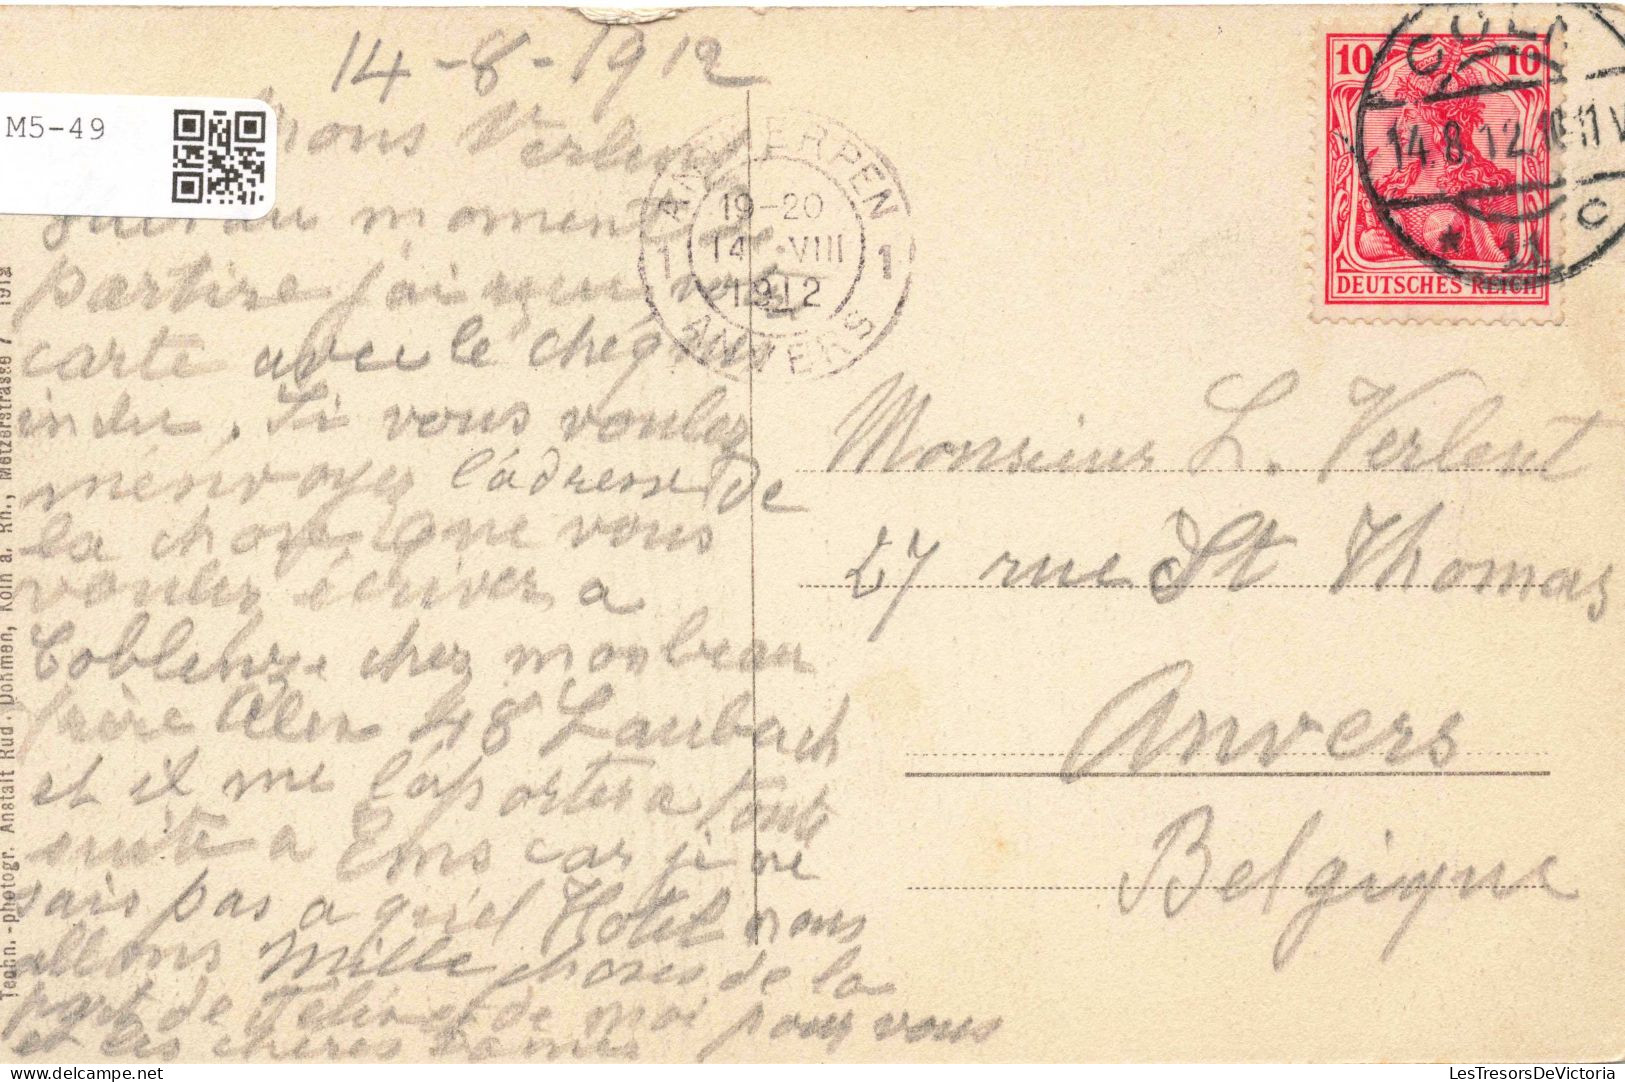 14-8-1912
M5-49
Mons Verlent
au moment de
partire j'ai reçu votre
carte avec le cheque
inclu. Si vous voulez
m'envoyer l'adresse de
la chose que vous
voulez écrires a
Coblenze chez mon beau
frère Alex 48 Laubach
et il me l'aportera toute
suite a Ems car je ne
sais pas a quel Hotel nous
allons Mille choses de la
part de et de moi pour vous
et les chères dames
Techn.-photogr. Anstalt Rud. Dohmen, Köln a. Rh., Metzerstrasse 7 1912
ANTWERPEN
19-20
1 14 VIII 1
1912
ANVERS
10 10
DEUTSCHES REICH
CÖLN
14.8.12.10-11V
* 11 c
Monsieur L. Verlent
27 rue St Thomas
Anvers
Belgique
LesTresorsDeVictoria